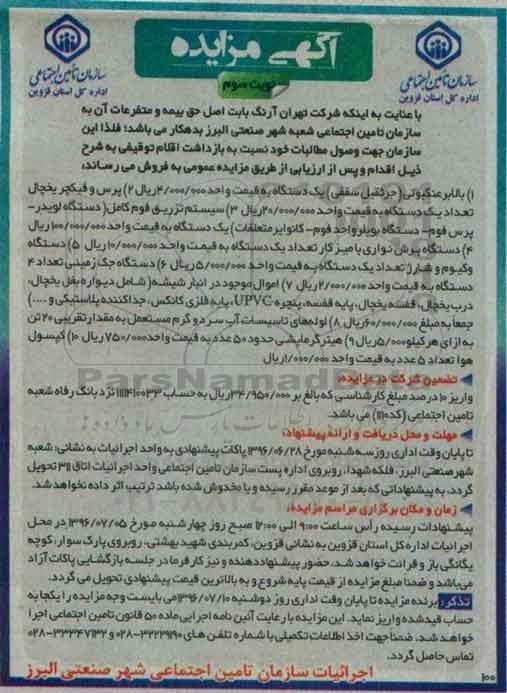 آگهی مزایده
نوبت سوم
سازمان تأمین اجتماعی
اداره کل استان قزوین
سازمان تأمین اجتماعی
اداره کل استان قزوین
با عنایت به اینکه شرکت تهران آرنگ بابت اصل حق بیمه و متفرعات آن به
سازمان تامین اجتماعی شعبه شهر صنعتی البرز بدهکار می باشد؛ فلذا این
سازمان جهت وصول مطالبات خود نسبت به بازداشت اقلام توقیفی به شرح
ذیل اقدام و پس از ارزیابی از طریق مزایده عمومی به فروش می رساند:
۱) بالابر عنکبوتی (جرثقیل سقفی) یک دستگاه به قیمت واحد ۴/۰۰۰/۰۰۰ریال ۲) پرس و فیکچر یخچال
تعداد یک دستگاه به قیمت واحد ۲۰/۰۰۰/۰۰۰ریال ۳) سیستم تزریق فوم کامل( دستگاه لویدر-
پرس فوم- دستگاه بویلر واحد فوم- کانوایر متعلقات) یک دستگاه به قیمت واحد ۱۰۰/۰۰۰/۰۰۰ریال
۴) دستگاه برش نواری با میز کار تعداد یک دستگاه به قیمت واحد ۱۰/۰۰۰/۰۰۰ریال ۵) دستگاه
وکیوم و شارژ تعداد یک دستگاه به قیمت واحد ۵/۰۰۰/۰۰۰ریال ۶) دستگاه جک زمینی تعداد ۴
دستگاه به قیمت واحد ۲/۰۰۰/۰۰۰ریال ۷) اموال موجود در انبار شیشه( شامل دیواره بغل یخچال،
درب یخچال، قفسه یخچال، پایه قفسه، پنجره UPVC، پایه فلزی کانکس، جداکننده پلاستیکی و ....)
جمعاً به مبلغ ۶۰/۰۰۰/۰۰۰ریال ۸) لوله‌های تاسیسات آب سرد و گرم مستعمل به مقدار تقریبی ۲۰ تن
به ازای هر کیلو ۵/۰۰۰ریال ۹) هیتر گرمایشی حدود ۵۰ عدد به قیمت واحد ۷۵۰/۰۰۰ریال ۱۰) کپسول
هوا تعداد ۵ عدد به قیمت واحد ۱/۰۱۰/۰۰۰ریال
تضمین شرکت در مزایده:
واریز ۱۰ درصد مبلغ کارشناسی که بالغ بر ۳۴/۹۵۰/۰۰۰ریال به حساب نزد بانک رفاه شعبه
تامین اجتماعی (کد۱۱۱) می باشد.
مهلت و محل دریافت و ارائه پیشنهاد:
تا پایان وقت اداری روز سه شنبه مورخ ۱۳۹۶/۰۶/۲۸ پاکات پیشنهادی به واحد اجرائیات به نشانی: شعبه
شهر صنعتی البرز، فلکه شهدا، روبروی اداره پست سازمان تامین اجتماعی واحد اجرائیات اتاق ۳۱۱ تحویل
گردد، به پیشنهاداتی که بعد از موعد مقرر رسیده و یا مخدوش شده باشد ترتیب اثر داده نخواهد شد.
زمان و مکان برگزاری مراسم مزایده:
پیشنهادات رسیده رأس ساعت ۹:۰۰ الی ۱۲:۰۰ صبح روز چهارشنبه مورخ ۱۳۹۶/۰۷/۰۵ در محل
اجرائیات اداره کل استان قزوین به نشانی قزوین، کمربندی شهید بهشتی، روبروی پارک سوار، کوچه
یگانگی باز و قرائت خواهد شد. حضور پیشنهاددهنده و نیز کارفرما در جلسه بازگشایی پاکات آزاد
می‌باشد و ضمنا مبلغ مزایده از قیمت پایه شروع و به بالاترین قیمت پیشنهادی تحویل می گردد.
تذکر: برنده مزایده تا پایان وقت اداری روز دوشنبه ۱۳۹۶/۰۷/۱۰ می بایست وجه مزایده را یکجا به
حساب قید شده واریز نماید. این مزایده با رعایت آئین نامه اجرایی ماده ۵۰ قانون تامین اجتماعی اجرا
خواهد شد. ضمنا جهت اخذ اطلاعات تکمیلی با شماره تلفن های ۳۲۲۳۹۱۹۰-۰۲۸ و ۳۳۳۴۷۱۳۲-۰۲۸
تماس حاصل گردد.
۱۰۰
اجرائیات سازمان تامین اجتماعی شهر صنعتی البرز
ParsNamadData